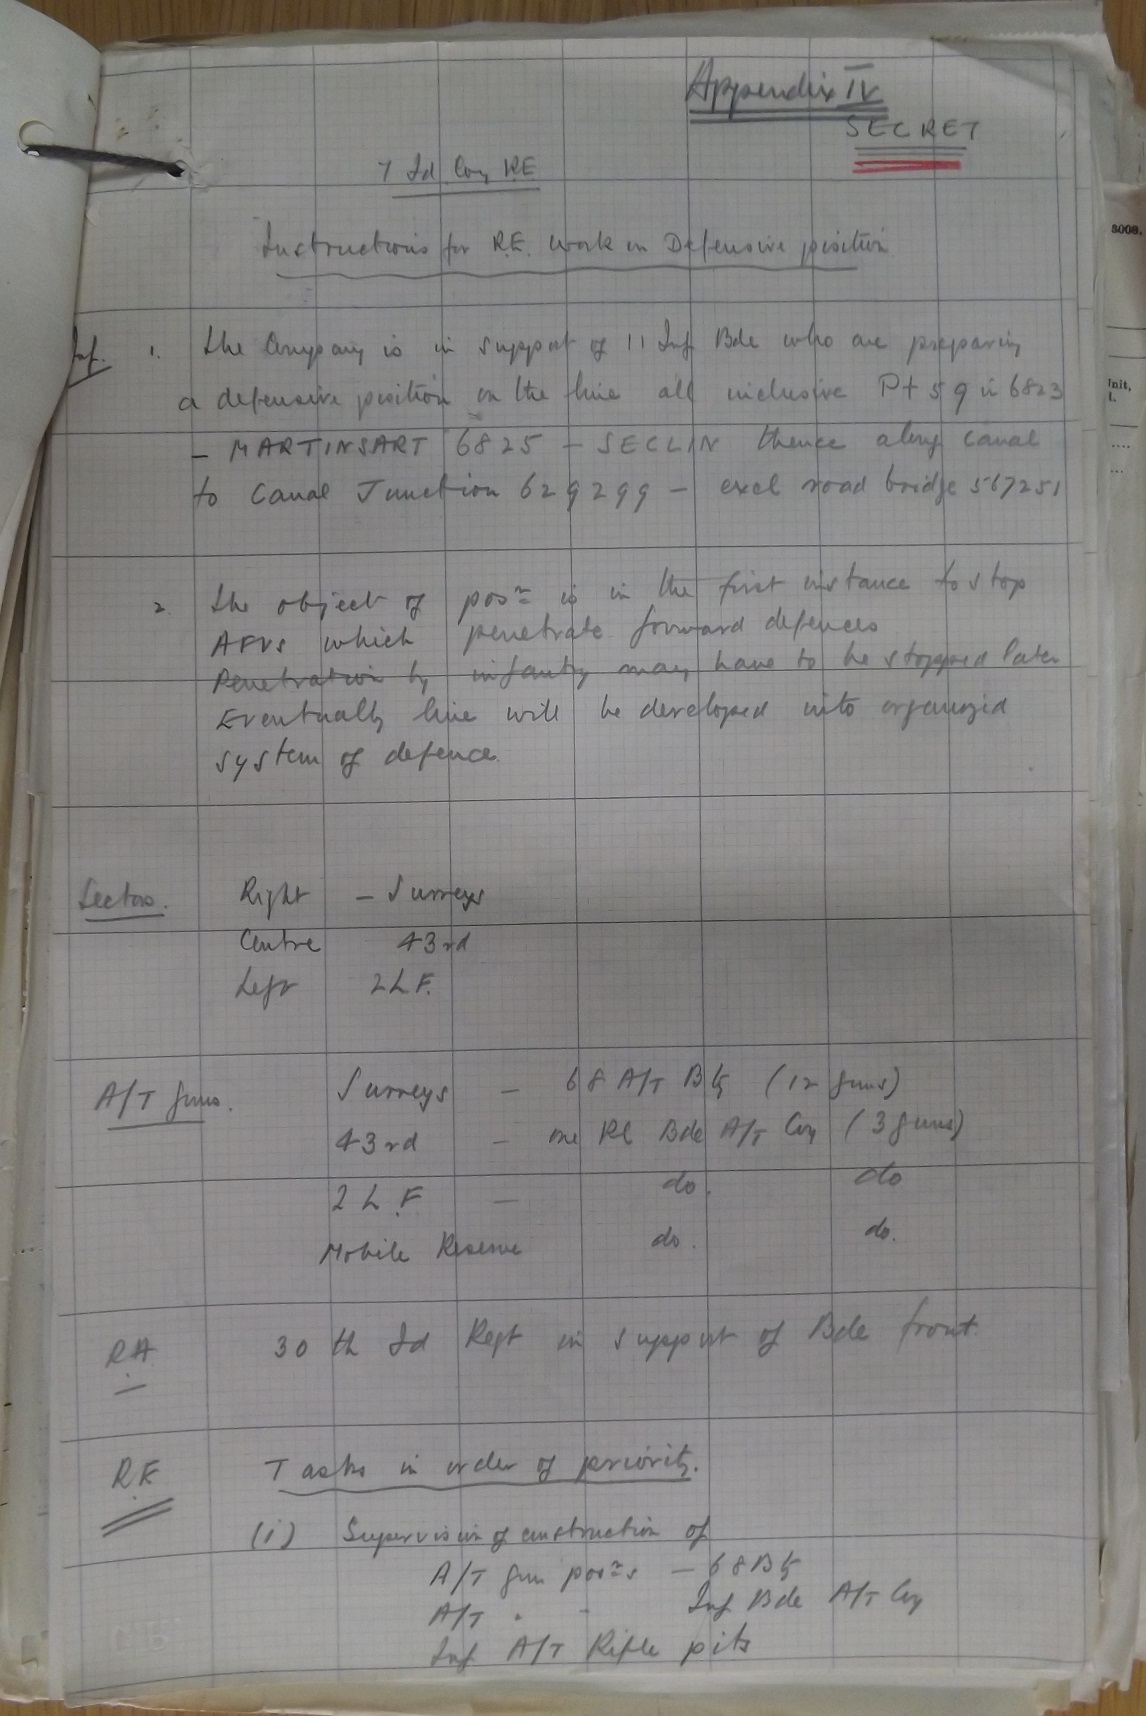 Appendix IV
SECRET
7 Fd Coy RE
Instructions for R.E. work in Defensive position
Inf. 1. The Company is in support of 11 Inf Bde who are preparing
a defensive position on the line all inclusive Pt 59 in 6823
- MARTINSART 6825 - SECLIN thence along canal
to Canal Junction 629299 - excl road bridge 567251
2. The object of posn is in the first instance to stop
AFVs which penetrate forward defences
Penetration by infantry may have to be stopped later
Eventually line will be developed into organized
system of defence.
Sectors. Right - Surreys
Centre 43rd
Left 2 L F.
A/T Guns. Surreys - 68 A/T Bty (12 guns)
43rd - one Pl Bde A/T Coy (3 guns)
2 L.F - do. do
Mobile Reserve do. do.
RA 30th Fd Regt in support of Bde front.
R.E Tasks in order of priority.
(i) Supervision of construction of
A/T gun posns - 68 Bty
A/T " - Inf Bde A/T Coy
Inf A/T Rifle pits
3008.
Unit,